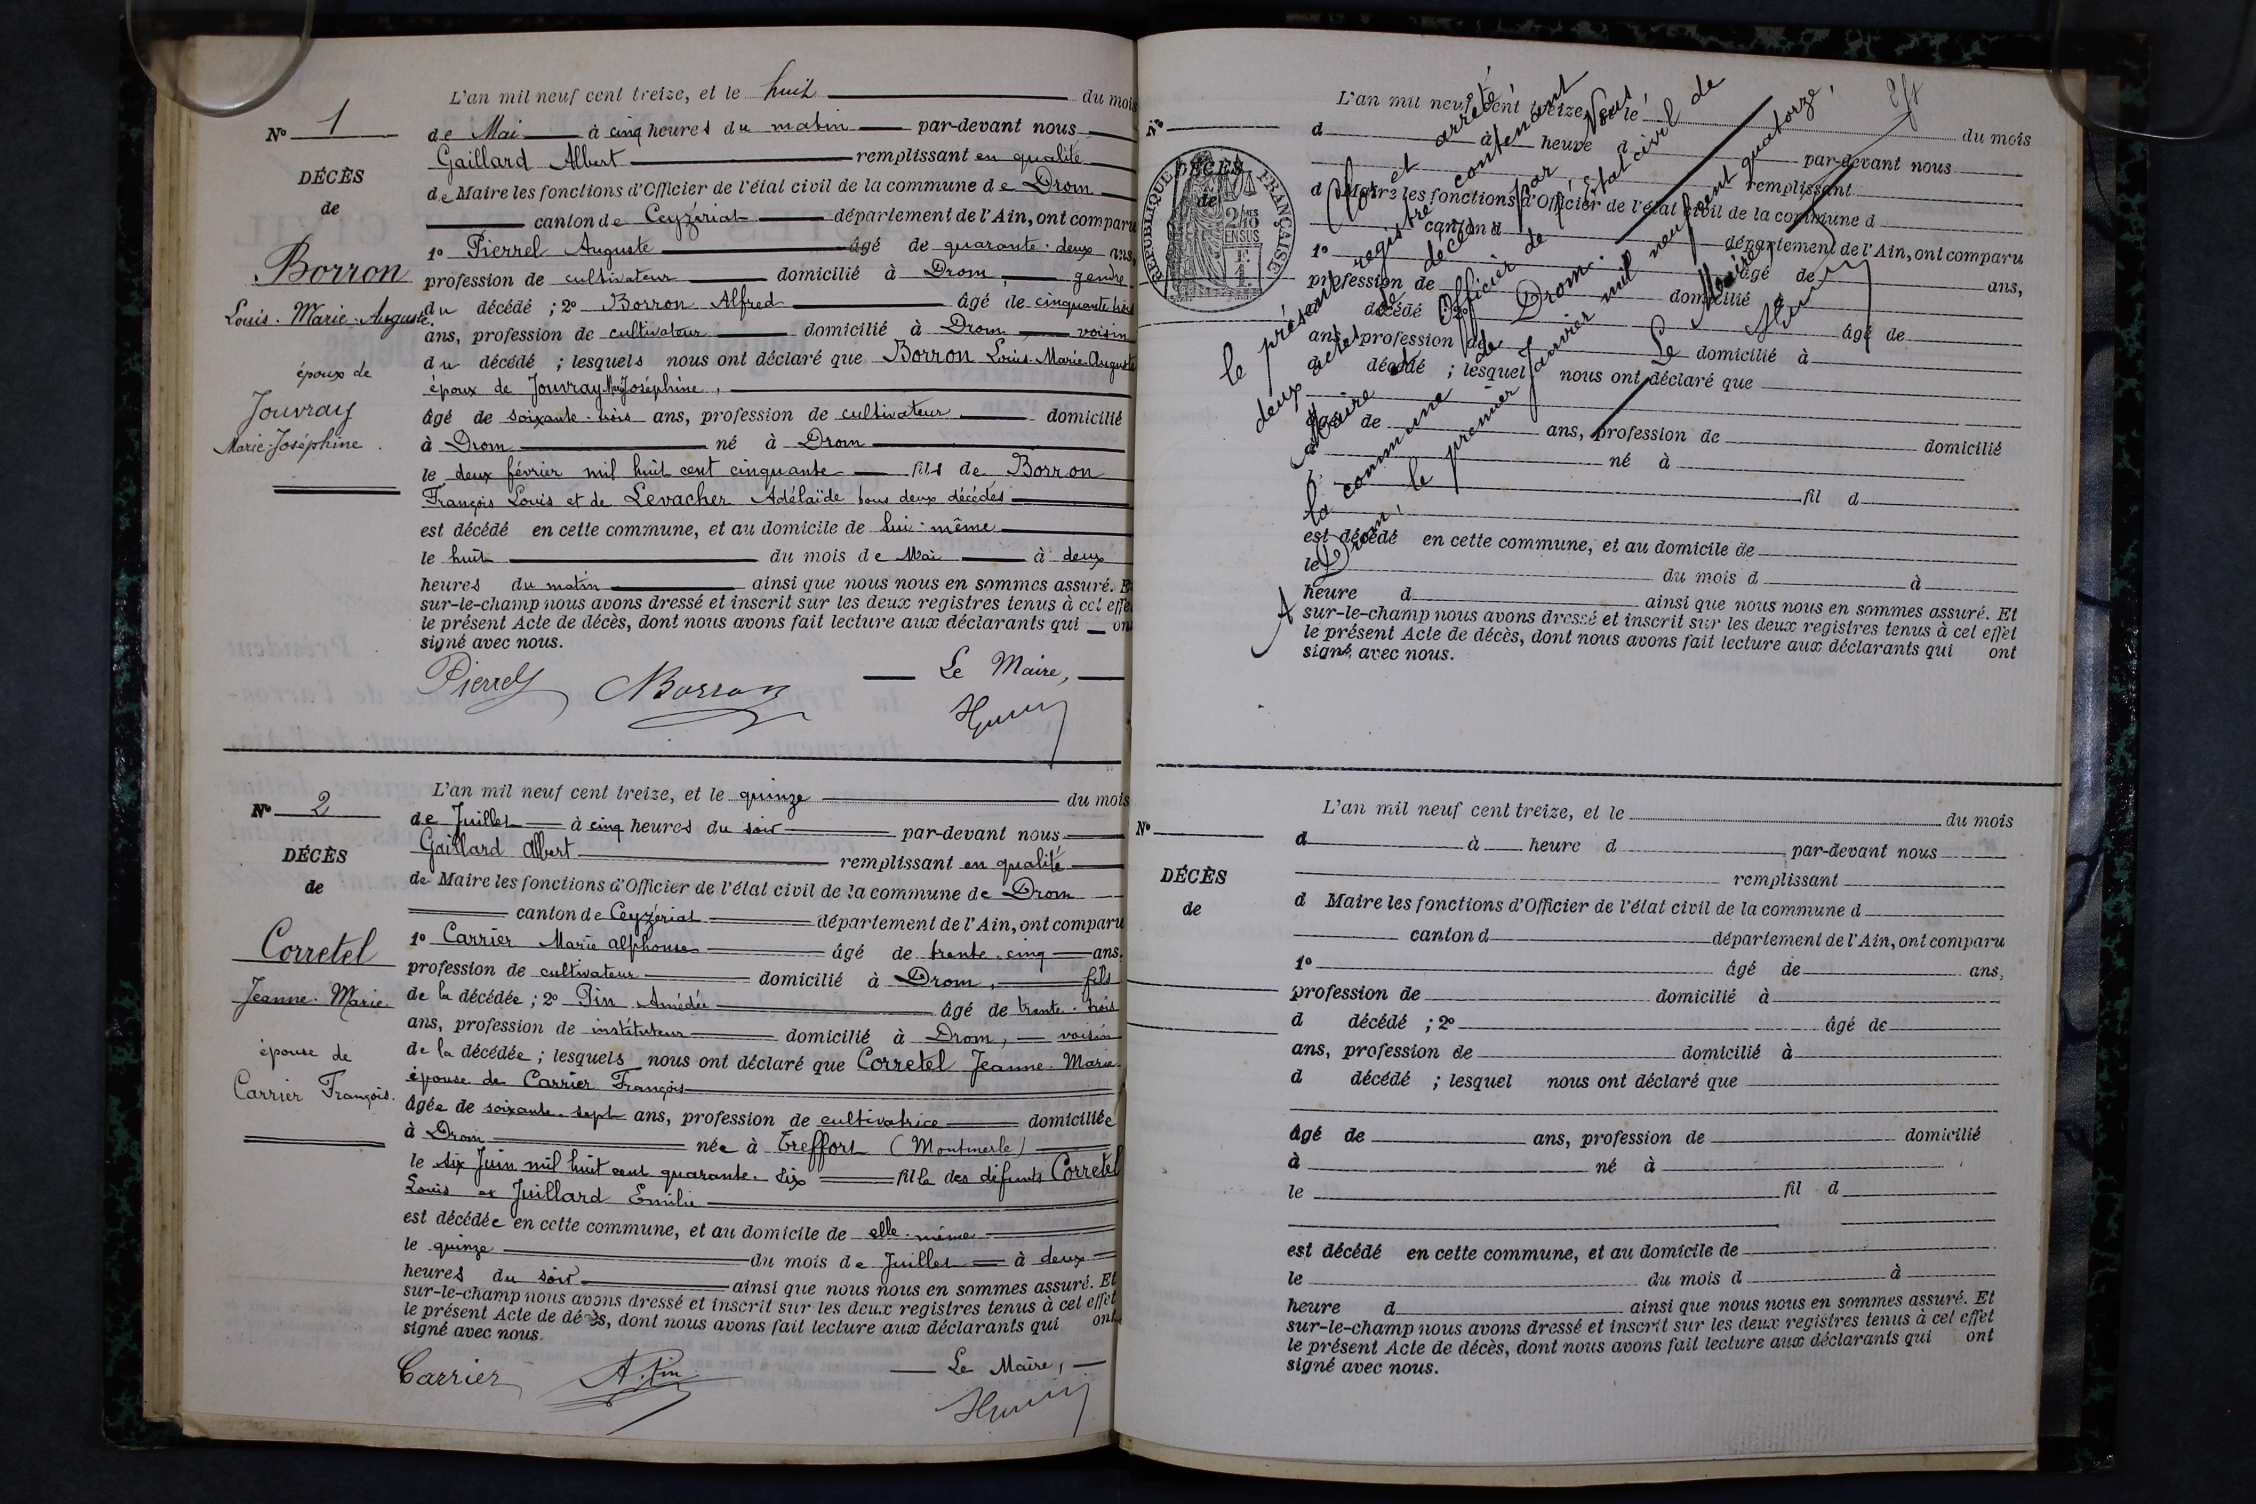 L'an mil neuf cent treize, et le huit du mois
N° 1
de Mai à cinq heures du matin par-devant nous
Gaillard Albert remplissant en qualité
DÉCÈS
de Maire les fonctions d'Officier de l'état civil de la commune de Drom
de
canton de Ceyzériat département de l'Ain, ont comparu
1° Pierrel Auguste âgé de quarante-deux ans,
Borron
profession de cultivateur domicilié à Drom gendre
Louis-Marie-Auguste
du décédé ; 2° Borron Alfred âgé de cinquante trois
ans, profession de cultivateur domicilié à Drom, voisin
du décédé ; lesquels nous ont déclaré que Borron Louis-Marie-Auguste
époux de
époux de Jouvray Marie Joséphine,
Jouvray
âgé de soixante-trois ans, profession de cultivateur domicilié
Marie-Joséphine
à Drom né à Drom
le deux février mil huit cent cinquante fils de Borron
François Louis et de Levacher Adélaïde tous deux décédés
est décédé en cette commune, et au domicile de lui-même
le huit du mois de Mai à deux
heures du matin ainsi que nous nous en sommes assuré. Et
sur-le-champ nous avons dressé et inscrit sur les deux registres tenus à cet effet
le présent Acte de décès, dont nous avons fait lecture aux déclarants qui ont
signé avec nous.
Pierrel Borron Le Maire,
L'an mil neuf cent treize, et le quinze du mois
N° 2
de Juillet à cinq heures du soir par-devant nous
Gaillard Albert remplissant en qualité
DÉCÈS
de Maire les fonctions d'Officier de l'état civil de la commune de Drom
de
canton de Ceyzériat département de l'Ain, ont comparu
Corretel
1° Carrier Marie Alphonse âgé de trente-cinq ans,
profession de cultivateur domicilié à Drom, fils
Jeanne-Marie
de la décédée ; 2° Pin Amédée âgé de trente-trois
ans, profession de instituteur domicilié à Drom, voisin
épouse de
de la décédée ; lesquels nous ont déclaré que Corretel Jeanne-Marie
Carrier François.
épouse de Carrier François
âgée de soixante-sept ans, profession de cultivatrice domiciliée
à Drom née à Treffort (Montmerle)
le six Juin mil huit cent quarante-six fille des défunts Corretel
Louis et Juillard Emilie
est décédée en cette commune, et au domicile de elle-même
le quinze du mois de Juillet à deux
heures du soir ainsi que nous nous en sommes assuré. Et
sur-le-champ nous avons dressé et inscrit sur les deux registres tenus à cet effet
le présent Acte de décès, dont nous avons fait lecture aux déclarants qui ont
signé avec nous.
Carrier A. Pin Le Maire,
L'an mil neuf cent treize, et le du mois
N°
d à heure d par-devant nous
remplissant
DÉCÈS
d Maire les fonctions d'Officier de l'état civil de la commune d
de
canton d département de l'Ain, ont comparu
1° âgé de ans,
profession de domicilié à
décédé ; 2° âgé de
ans, profession de domicilié à
décédé ; lesquel nous ont déclaré que
âgé de ans, profession de domicilié
à né à
fil d
est décédé en cette commune, et au domicile de
le du mois d à
heure d ainsi que nous nous en sommes assuré. Et
sur-le-champ nous avons dressé et inscrit sur les deux registres tenus à cet effet
le présent Acte de décès, dont nous avons fait lecture aux déclarants qui ont
signé avec nous.
RÉPUBLIQUE FRANÇAISE
2/10 EN SUS
Clos et arrêté
le présent registre contenant
deux actes de décès par Nous
Maire et Officier de l'Etat civil de
la commune de Drom.
A Drom, le premier Janvier mil neuf cent quatorze,
Le Maire,
L'an mil neuf cent treize, et le du mois
N°
d à heure d par-devant nous
remplissant
DÉCÈS
d Maire les fonctions d'Officier de l'état civil de la commune d
de
canton d département de l'Ain, ont comparu
1° âgé de ans,
profession de domicilié à
d décédé ; 2° âgé de
ans, profession de domicilié à
d décédé ; lesquel nous ont déclaré que
âgé de ans, profession de domicilié
à né à
le fil d
est décédé en cette commune, et au domicile de
le du mois d à
heure d ainsi que nous nous en sommes assuré. Et
sur-le-champ nous avons dressé et inscrit sur les deux registres tenus à cet effet
le présent Acte de décès, dont nous avons fait lecture aux déclarants qui ont
signé avec nous.